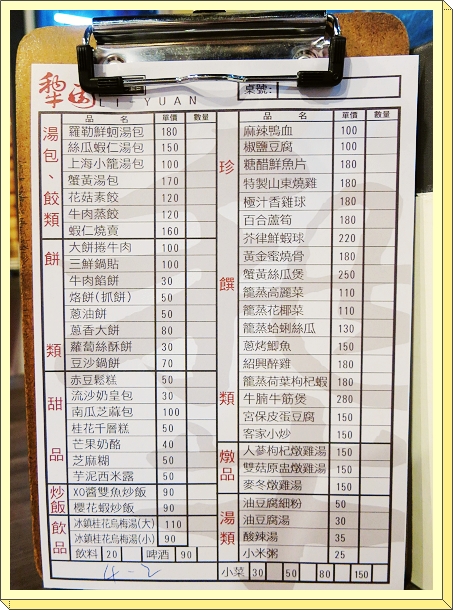 犁園
LI-YUAN
桌號:
品 名 單價 數量
湯包、餃類
羅勒鮮蚵湯包 180
絲瓜蝦仁湯包 150
上海小籠湯包 100
蟹黃湯包 170
花菇素餃 120
牛肉蒸餃 120
蝦仁燒賣 160
餅類
大餅捲牛肉 100
三鮮鍋貼 100
牛肉餡餅 30
烙餅(抓餅) 50
蔥油餅 50
蔥香大餅 80
蘿蔔絲酥餅 30
豆沙鍋餅 70
甜品
赤豆鬆糕 50
流沙奶皇包 30
南瓜芝麻包 100
桂花千層糕 50
芒果奶酪 40
芝麻糊 50
芋泥西米露 50
炒飯
XO醬雙魚炒飯 90
櫻花蝦炒飯 90
飲品
冰鎮桂花烏梅湯(大) 110
冰鎮桂花烏梅湯(小) 90
飲料 20 啤酒 90
品 名 單價 數量
珍饌類
麻辣鴨血 100
椒鹽豆腐 100
糖醋鮮魚片 180
特製山東燒雞 180
極汁香雞球 180
百合蘆筍 180
芥律鮮蝦球 220
黃金蜜燒骨 180
蟹黃絲瓜煲 250
籠蒸高麗菜 110
籠蒸花椰菜 110
籠蒸蛤蜊絲瓜 130
蔥烤鯽魚 150
紹興醉雞 180
籠蒸荷葉枸杞蝦 180
牛腩牛筋煲 280
宮保皮蛋豆腐 150
客家小炒 150
燉品
人蔘枸杞燉雞湯 150
雙菇原盅燉雞湯 150
麥冬燉雞湯 150
湯類
油豆腐細粉 50
油豆腐湯 30
酸辣湯 35
小米粥 25
小菜 30 50 80 150